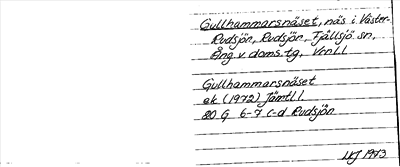 Gullhammarsnäset, näs i Väster-
Rudsjön, Rudsjön, Fjällsjö sn,
Ång.v.doms.tg, Vrnl.l
Gullhammarsnäset
ek (1972) Jämtl l.
20 G 6-7 c-d Rudsjön
1973